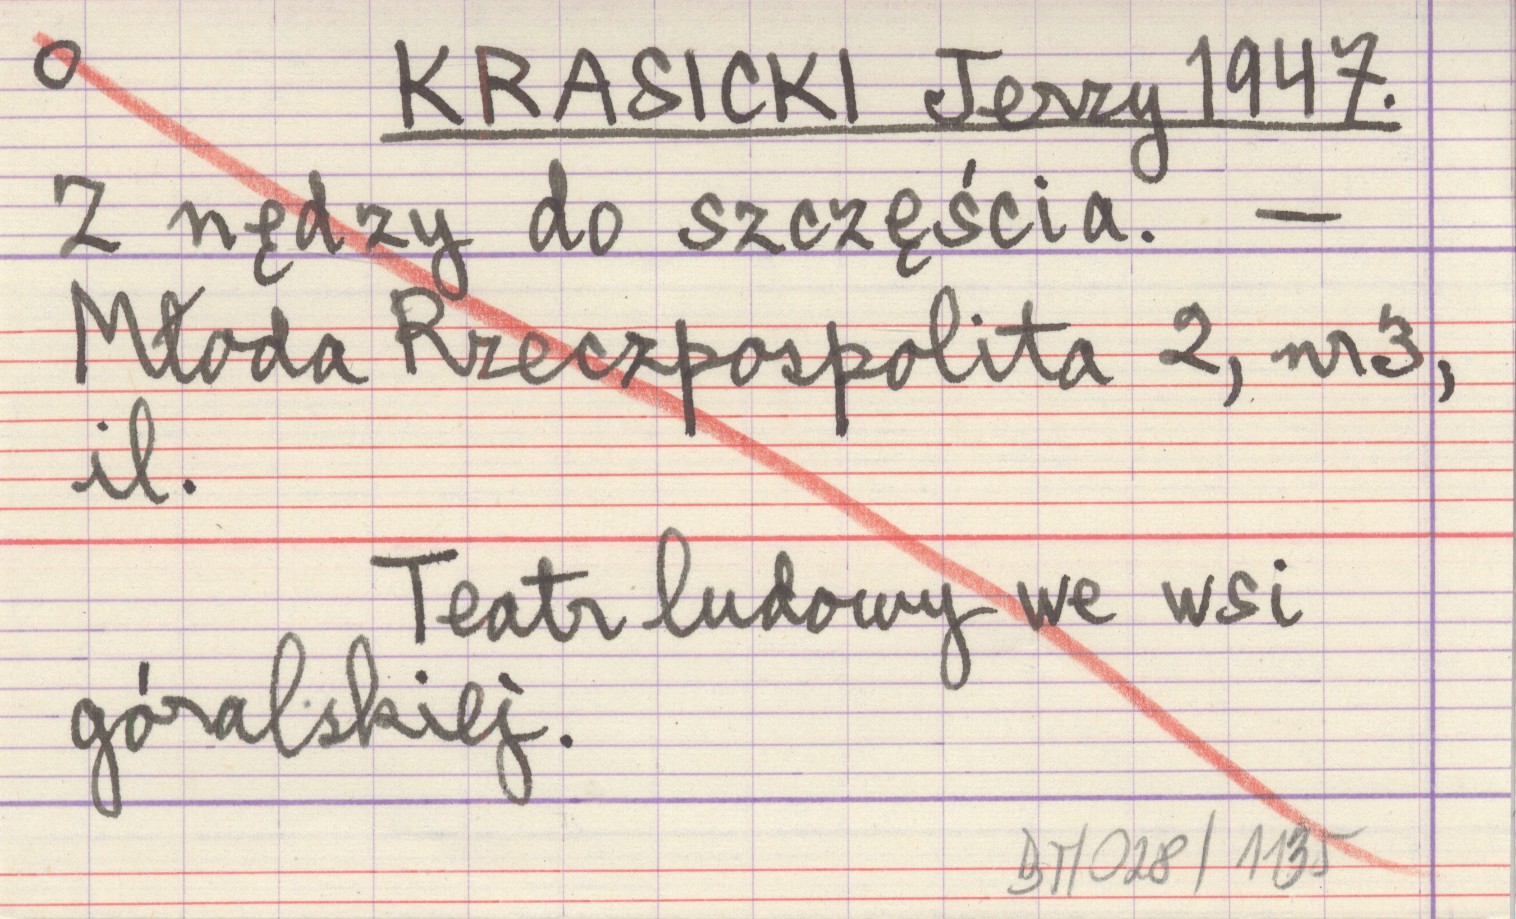 O KRASICKI Jerzy 1947.
Z nędzy do szczęścia. —
Młoda Rzeczpospolita 2, nr 3,
il.
Teatr ludowy we wsi
góralskiej.
BT/028/1135